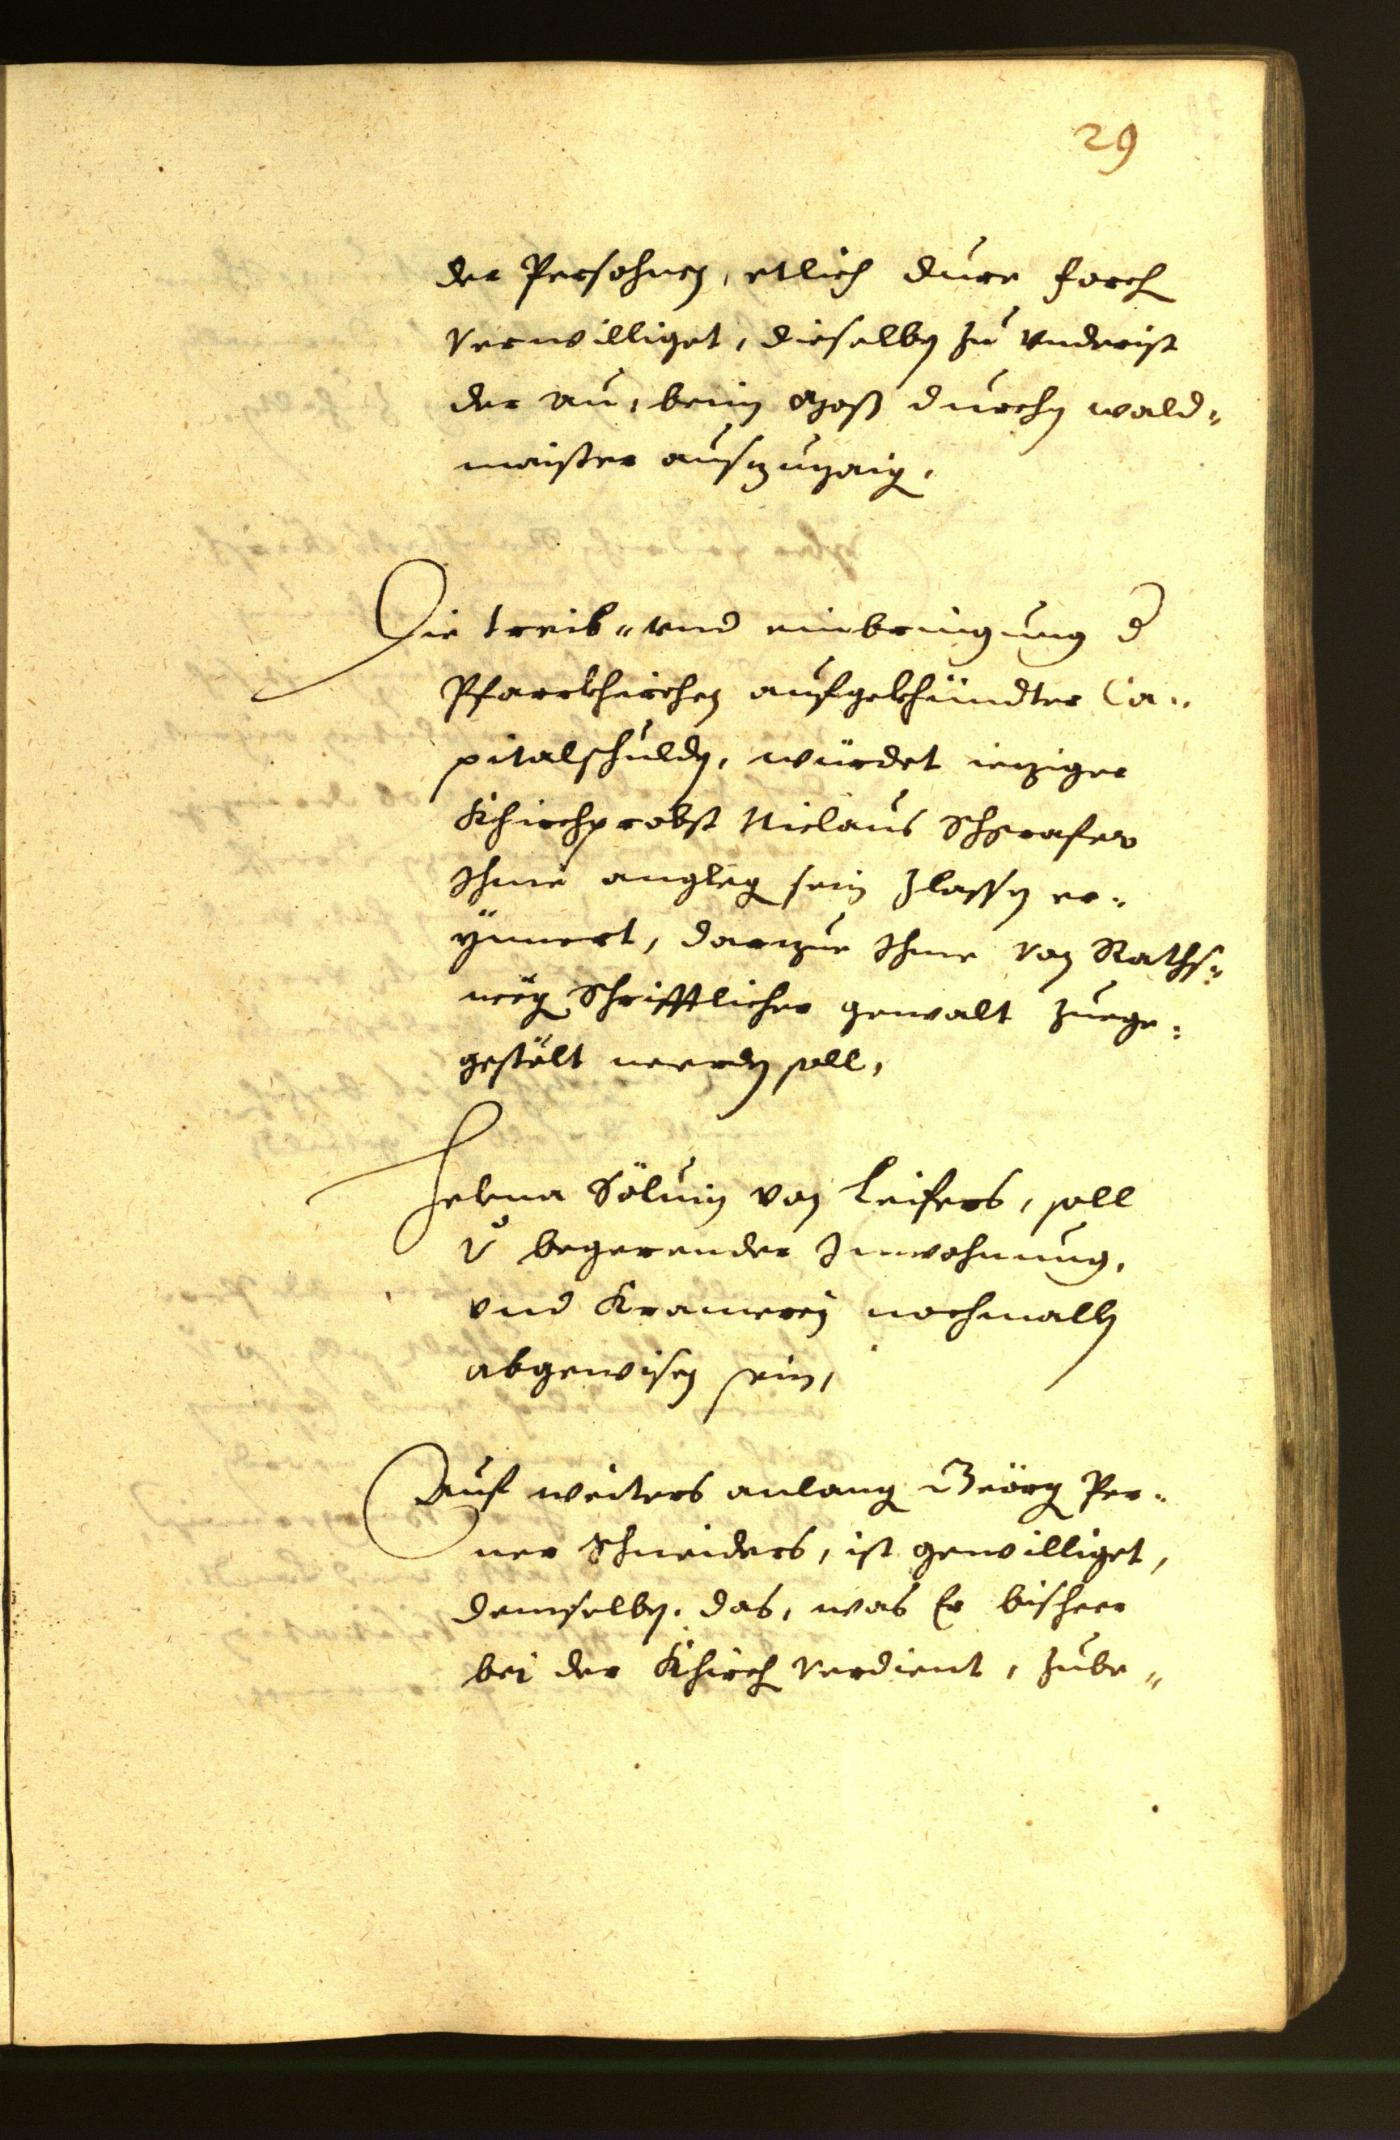 29
der Persohnen, etlich dure forch
verwilliget, dieselben zu vnderist
der au, beim Moß durchn wald„
maister auszuzaigen.
Die treib- vnd einbringung d
Pfarrkhirchen aufgekhündter Ca„
pitalschulden, würdet ieziger
Khirchprobst Niclaus Schgrafer
Ihme anglegen sein zlassen er„
ynnert, darzue Ihme von Raths„
wegen Schrifftlicher gewalt zuege„
gestölt werden soll,
Helena Sölvin von Leifers, soll
begerender Inwohnung,
vnd Kramerey nochmallen
abgewisen sein,
Auf weiters anlangen Geörgen Per„
ner Schneiders, ist gewilliget,
demselben, das, was Er bisheer
bei der Khirchen verdient, zube„